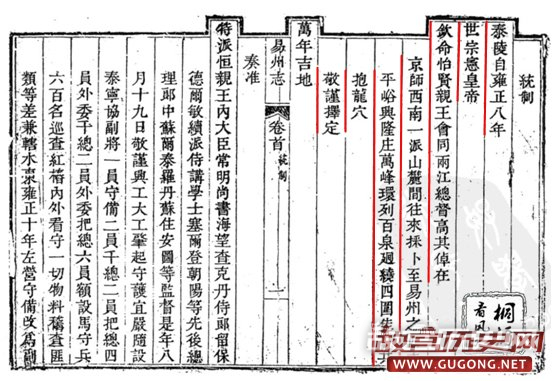 統制
泰陵自雍正八年
世宗憲皇帝
欽命怡賢親王會同兩江總督高其倬在
京師西南一派山麓間往來採卜至易州之
平峪興隆庄萬峰環列百泉廻繞四圍
抱龍穴
敬謹擇定
萬年吉地
易州志 卷首 統制 一
奏准
特派恒親王內大臣常明尚書海望查克丹侍郎留保
德爾敏續派侍講學士塞爾登朝陽等先後總
理郎中蘇爾泰羅丹蘇住安圖等監督是年八
月十九日敬謹興工大工肇起守護宜嚴隨設
泰寧協副將一員守備二員千總二員把總四
員外委千總二員外委把總六員額設馬守兵
六百名巡查紅樁內外看守一切物料稽查匪
類等差兼轄水東雍正十年左營守備改為副
桐
看风
故宫历史网
WWW.GUGONG.NET